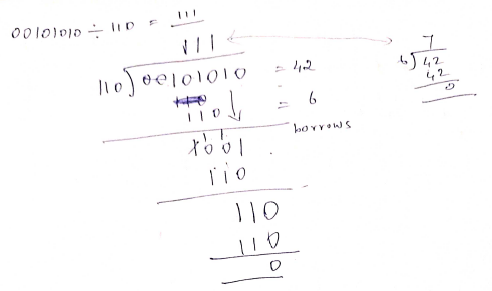 00101010 ÷ 110 = 111
111
110)00101010 = 42
110 = 6
borrows
1001
110
110
110
0
7
6)42
42
0